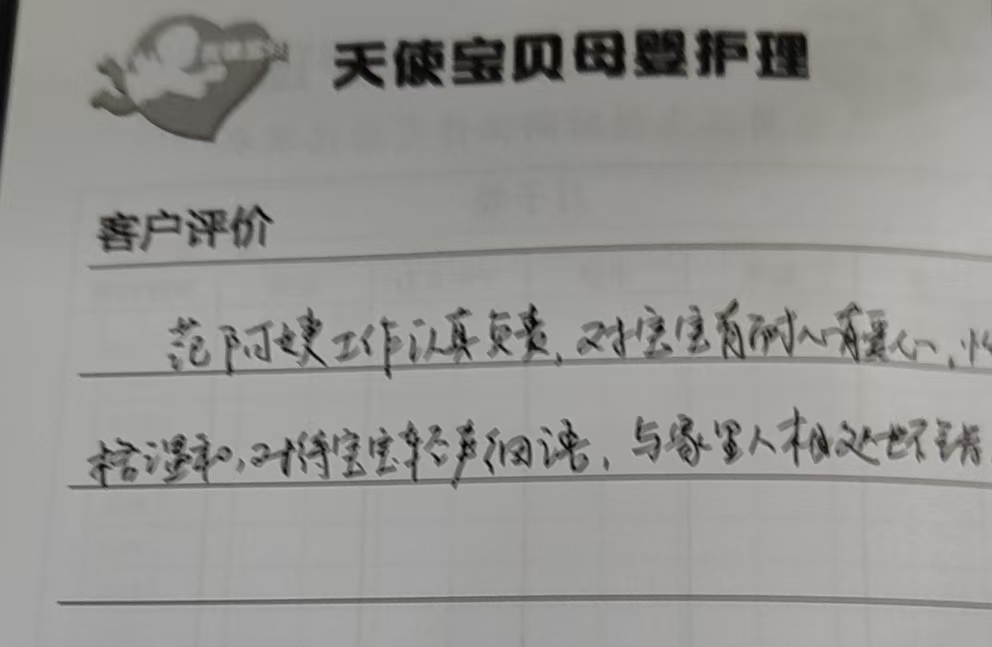 天使宝贝母婴护理
客户评价
范阿姨工作认真负责,对宝宝有耐心有爱心,性
格温和,对待宝宝轻声细语,与家里人相处也不错